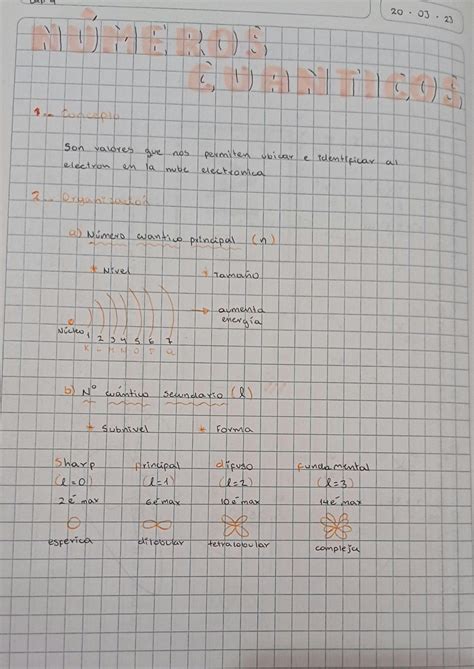 20 · 03 · 23
NÚMEROS
CUANTICOS
1.- Concepto
Son valores que nos permiten ubicar e identificar al
electron en la nube electronica
2.- Organizador
a) Número cuantico principal (n)
* Nivel * Tamaño
→ aumenta
energía
Núcleo 1 2 3 4 5 6 7
K L M N O P Q
b) N° cuántico secundario (l)
* Subnivel * Forma
Sharp principal difuso fundamental
(l=0) (l=1) (l=2) (l=3)
2e⁻ max 6e⁻ max 10e⁻ max 14e⁻ max
esferica dilobular tetralobular compleja